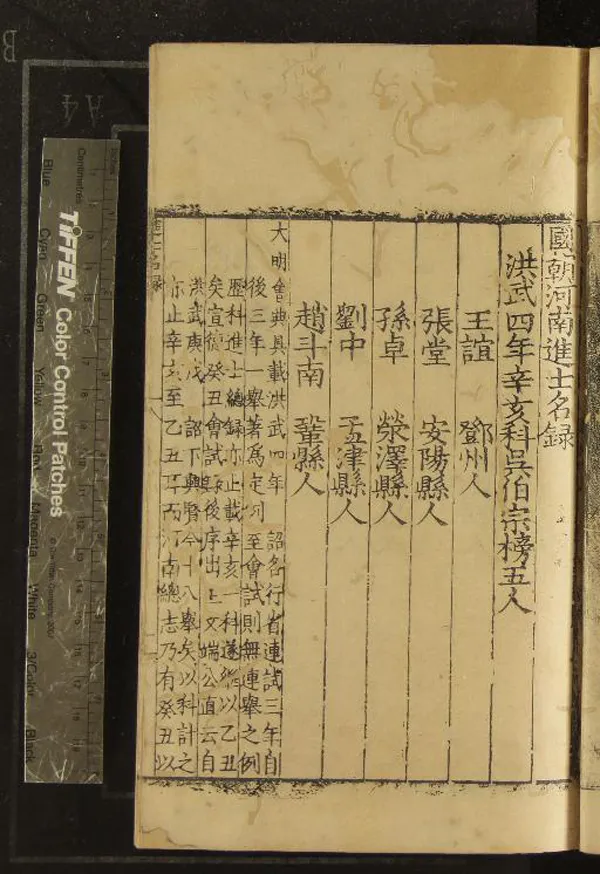 國朝河南進士名録
洪武四年辛亥科吳伯宗榜五人
王誼 鄧州人
張堂 安陽縣人
孫卓 滎澤縣人
劉中 孟津縣人
趙斗南 鞏縣人
大明會典具載洪武四年 詔各行省連試三年自
後三年一舉著爲定例 至會試則無連舉之例
歷科進士總録亦止載辛亥一科遂繼以乙丑
矣宣德癸丑會試録後序出 文端公直云自
洪武庚戌 詔下興賢今十八舉矣以科計之
亦止辛亥至乙丑 而河南總志乃有癸丑以
進士名録
B
A4
Centimetres
TIFFEN Color Control Patches
© The Tiffen Company, 2007
Blue
Cyan
Green
Yellow
Red
Magenta
White
3/Color
Black